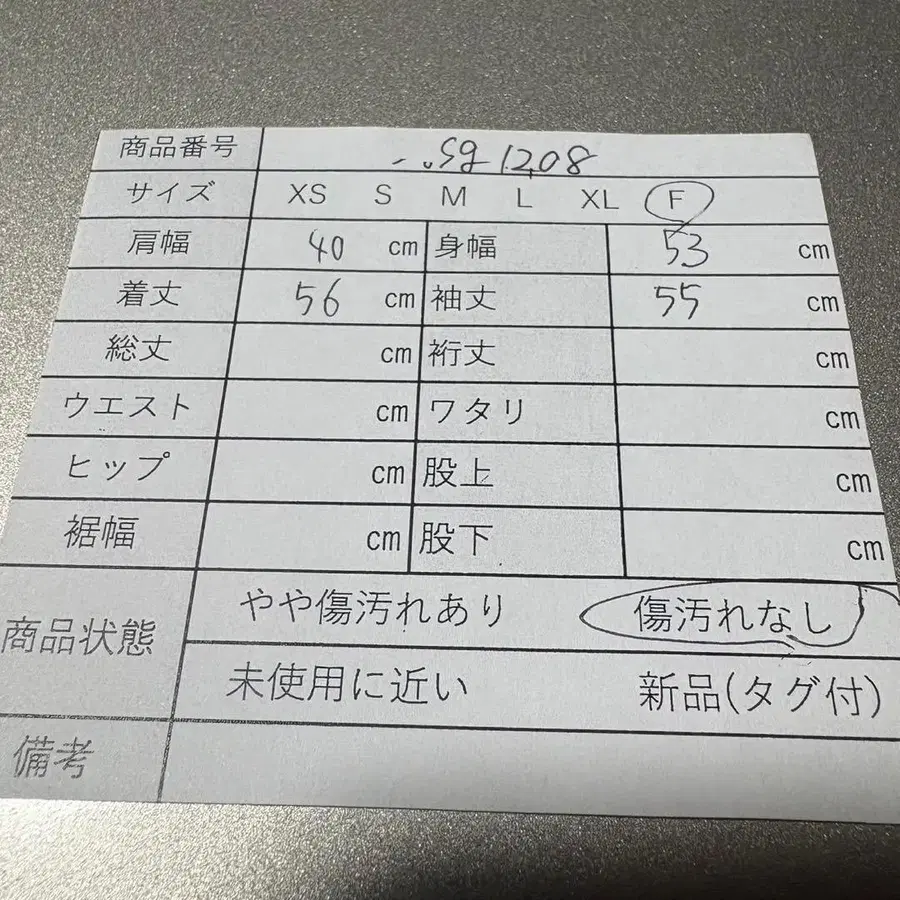 商品番号 sg1208
サイズ XS S M L XL F
肩幅 40 cm 身幅 53 cm
着丈 56 cm 袖丈 55 cm
総丈 cm 裄丈 cm
ウエスト cm ワタリ cm
ヒップ cm 股上 cm
裾幅 cm 股下 cm
商品状態 やや傷汚れあり 傷汚れなし
未使用に近い 新品(タグ付)
備考